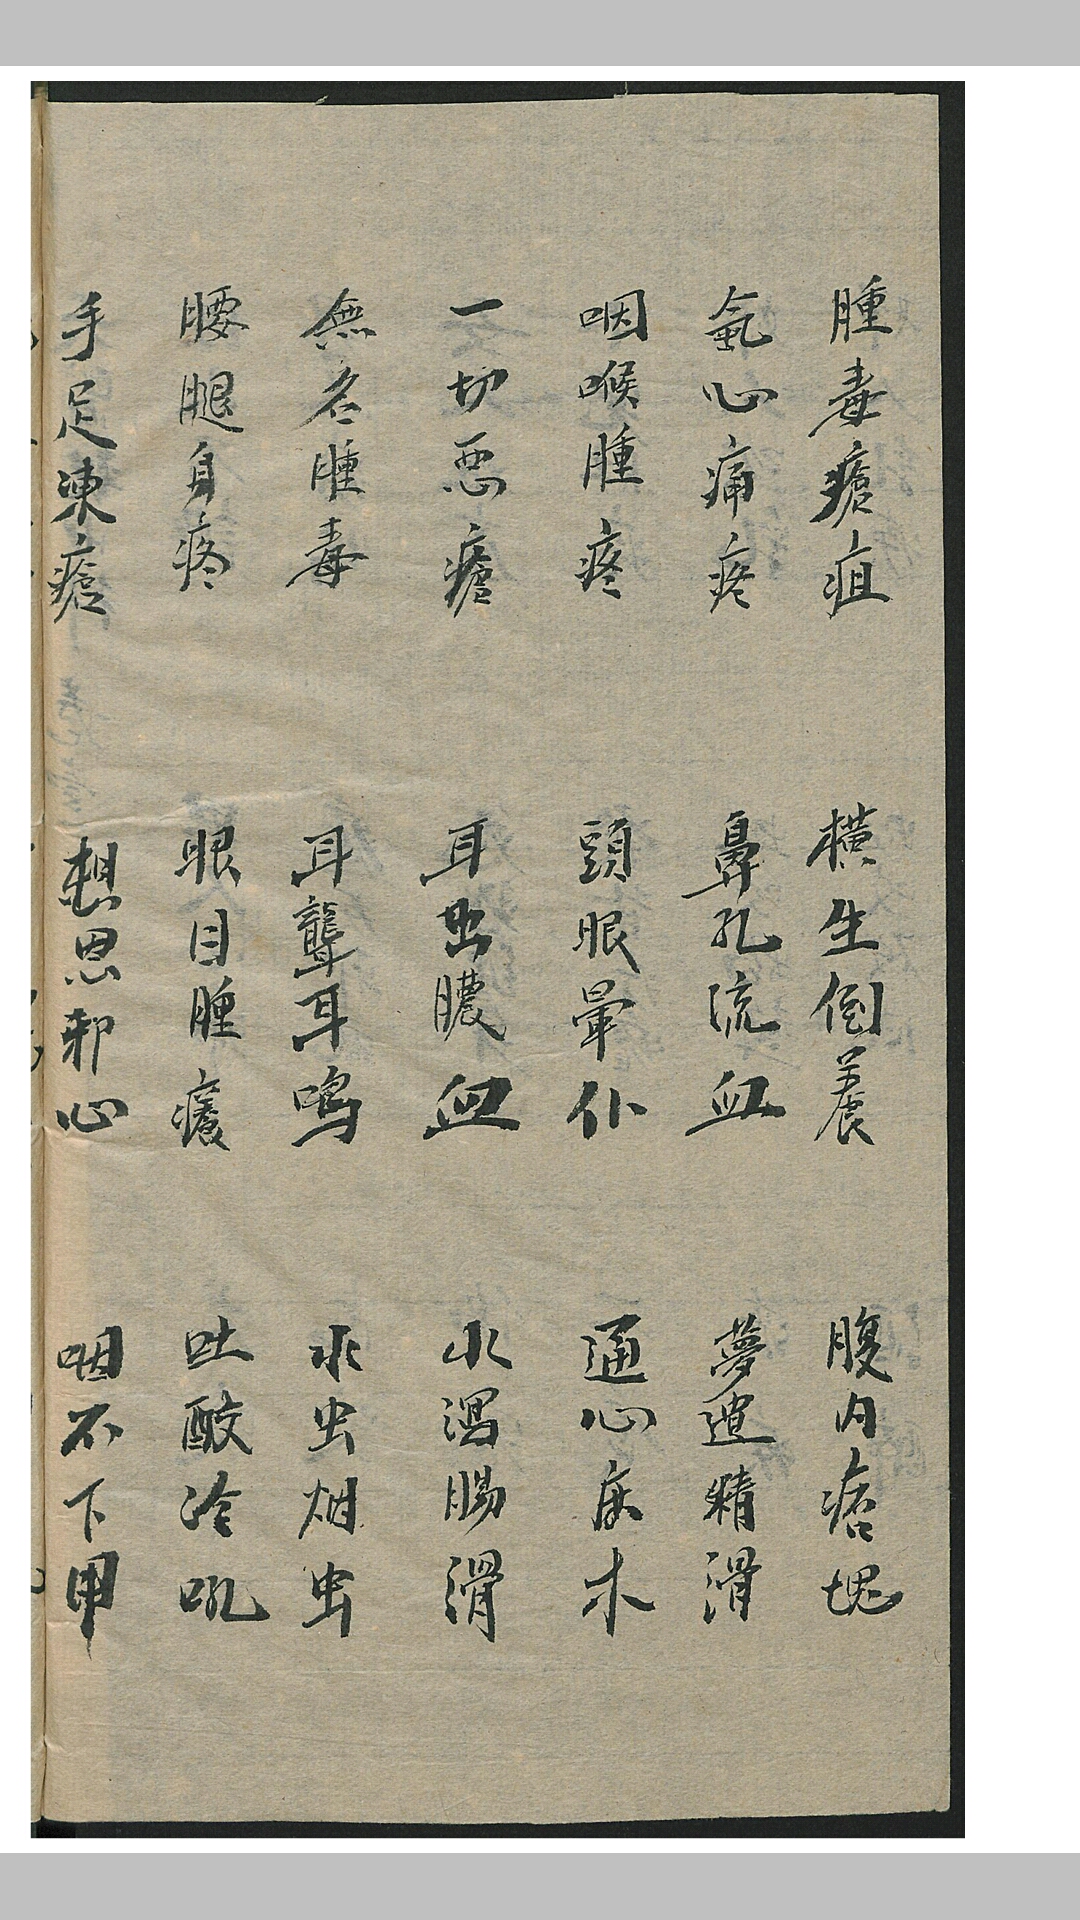 腫毒瘡疽 橫生倒養 腹内痞塊
氣心痛疼 鼻孔流血 夢遺精滑
咽喉腫疼 頭眼暈仆 通心麻木
一切惡瘡 耳出膿血 水瀉腸滑
無名腫毒 耳聾耳鳴 水虫烟虫
腰腿身疼 眼目腫癢 吐酸冷吼
手足凍瘡 想思邪心 咽不下甲